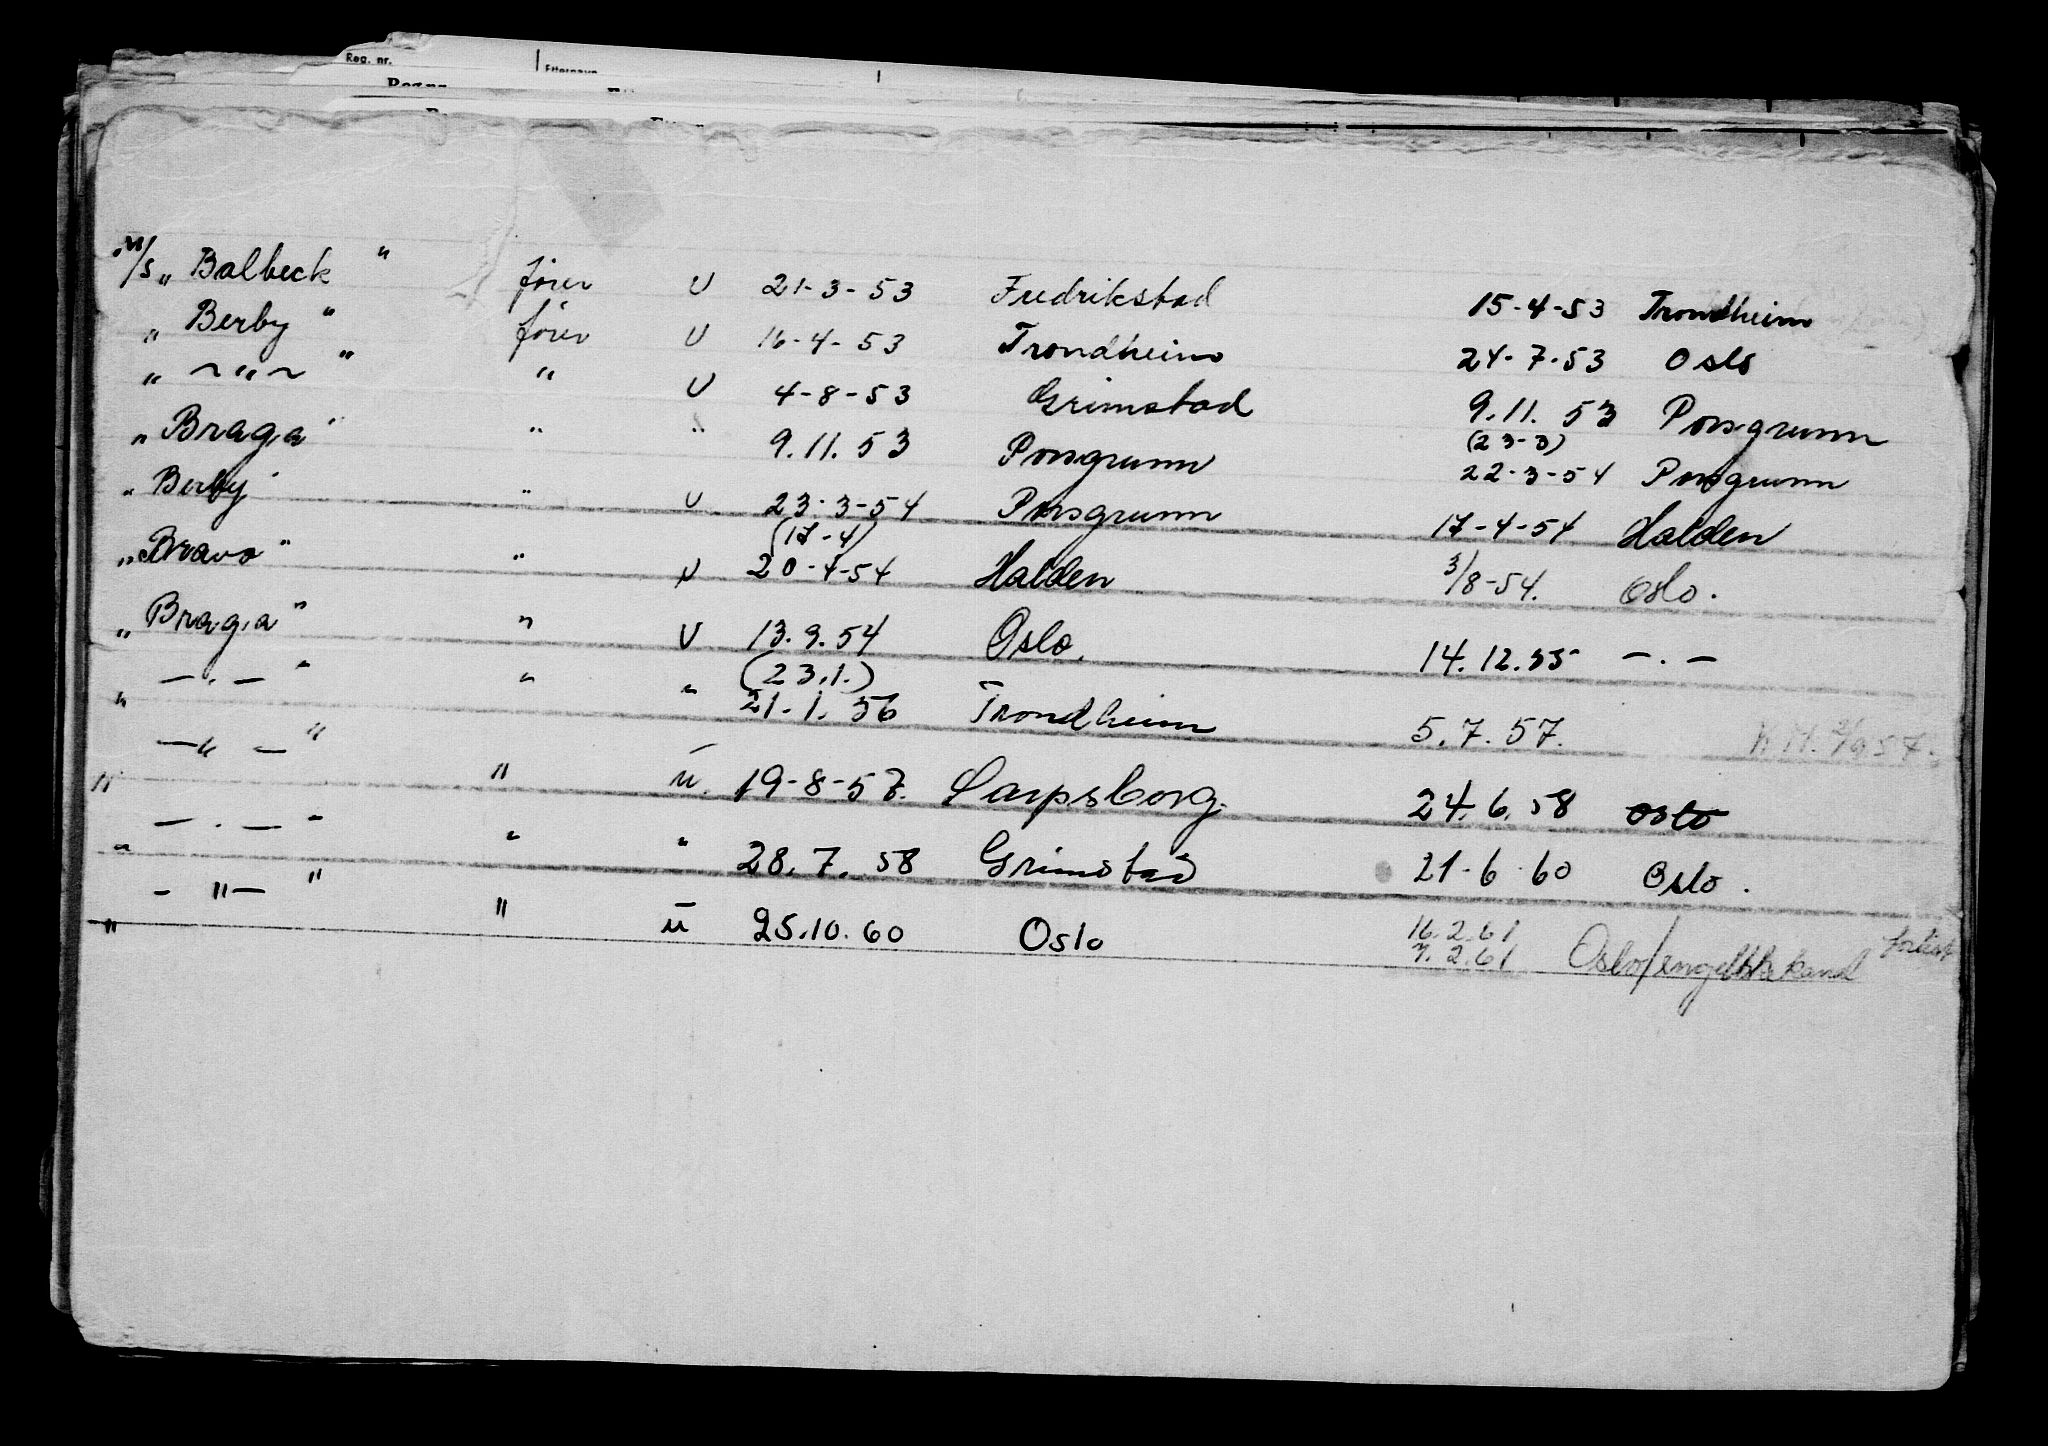 Reg. nr. Etternavn
M/S „ Balbeck " fører U 21-3-53 Fredrikstad 15-4-53 Trondheim
„ Berby " fører U 16-4-53 Trondheim 24-7-53 Oslo
„ ~ " ~ " " U 4-8-53 Grimstad 9.11.53 Porsgrunn
„ Braga " " " 9.11.53 Porsgrunn (23-3) 22-3-54 Porsgrunn
„ Berby " " U 23-3-54 Porsgrunn 17-4-54 Halden
(17-4)
„ Bravo " " U 20-4-54 Halden 3/8-54. Oslo.
„ Braga " " U 13.9.54 Oslo. 14.12.55 — . —
(23.1.)
„ — . — " " " 21.1.56 Trondheim 5.7.57.
" — " — " " u. 19-8-57. Sarpsborg. 24.6.58 Oslo
" — . — " " " 28.7.58 Grimstad 21-6-60 Oslo.
" - " — " " u 25.10.60 Oslo 16.2.61
7.2.61 Oslo/